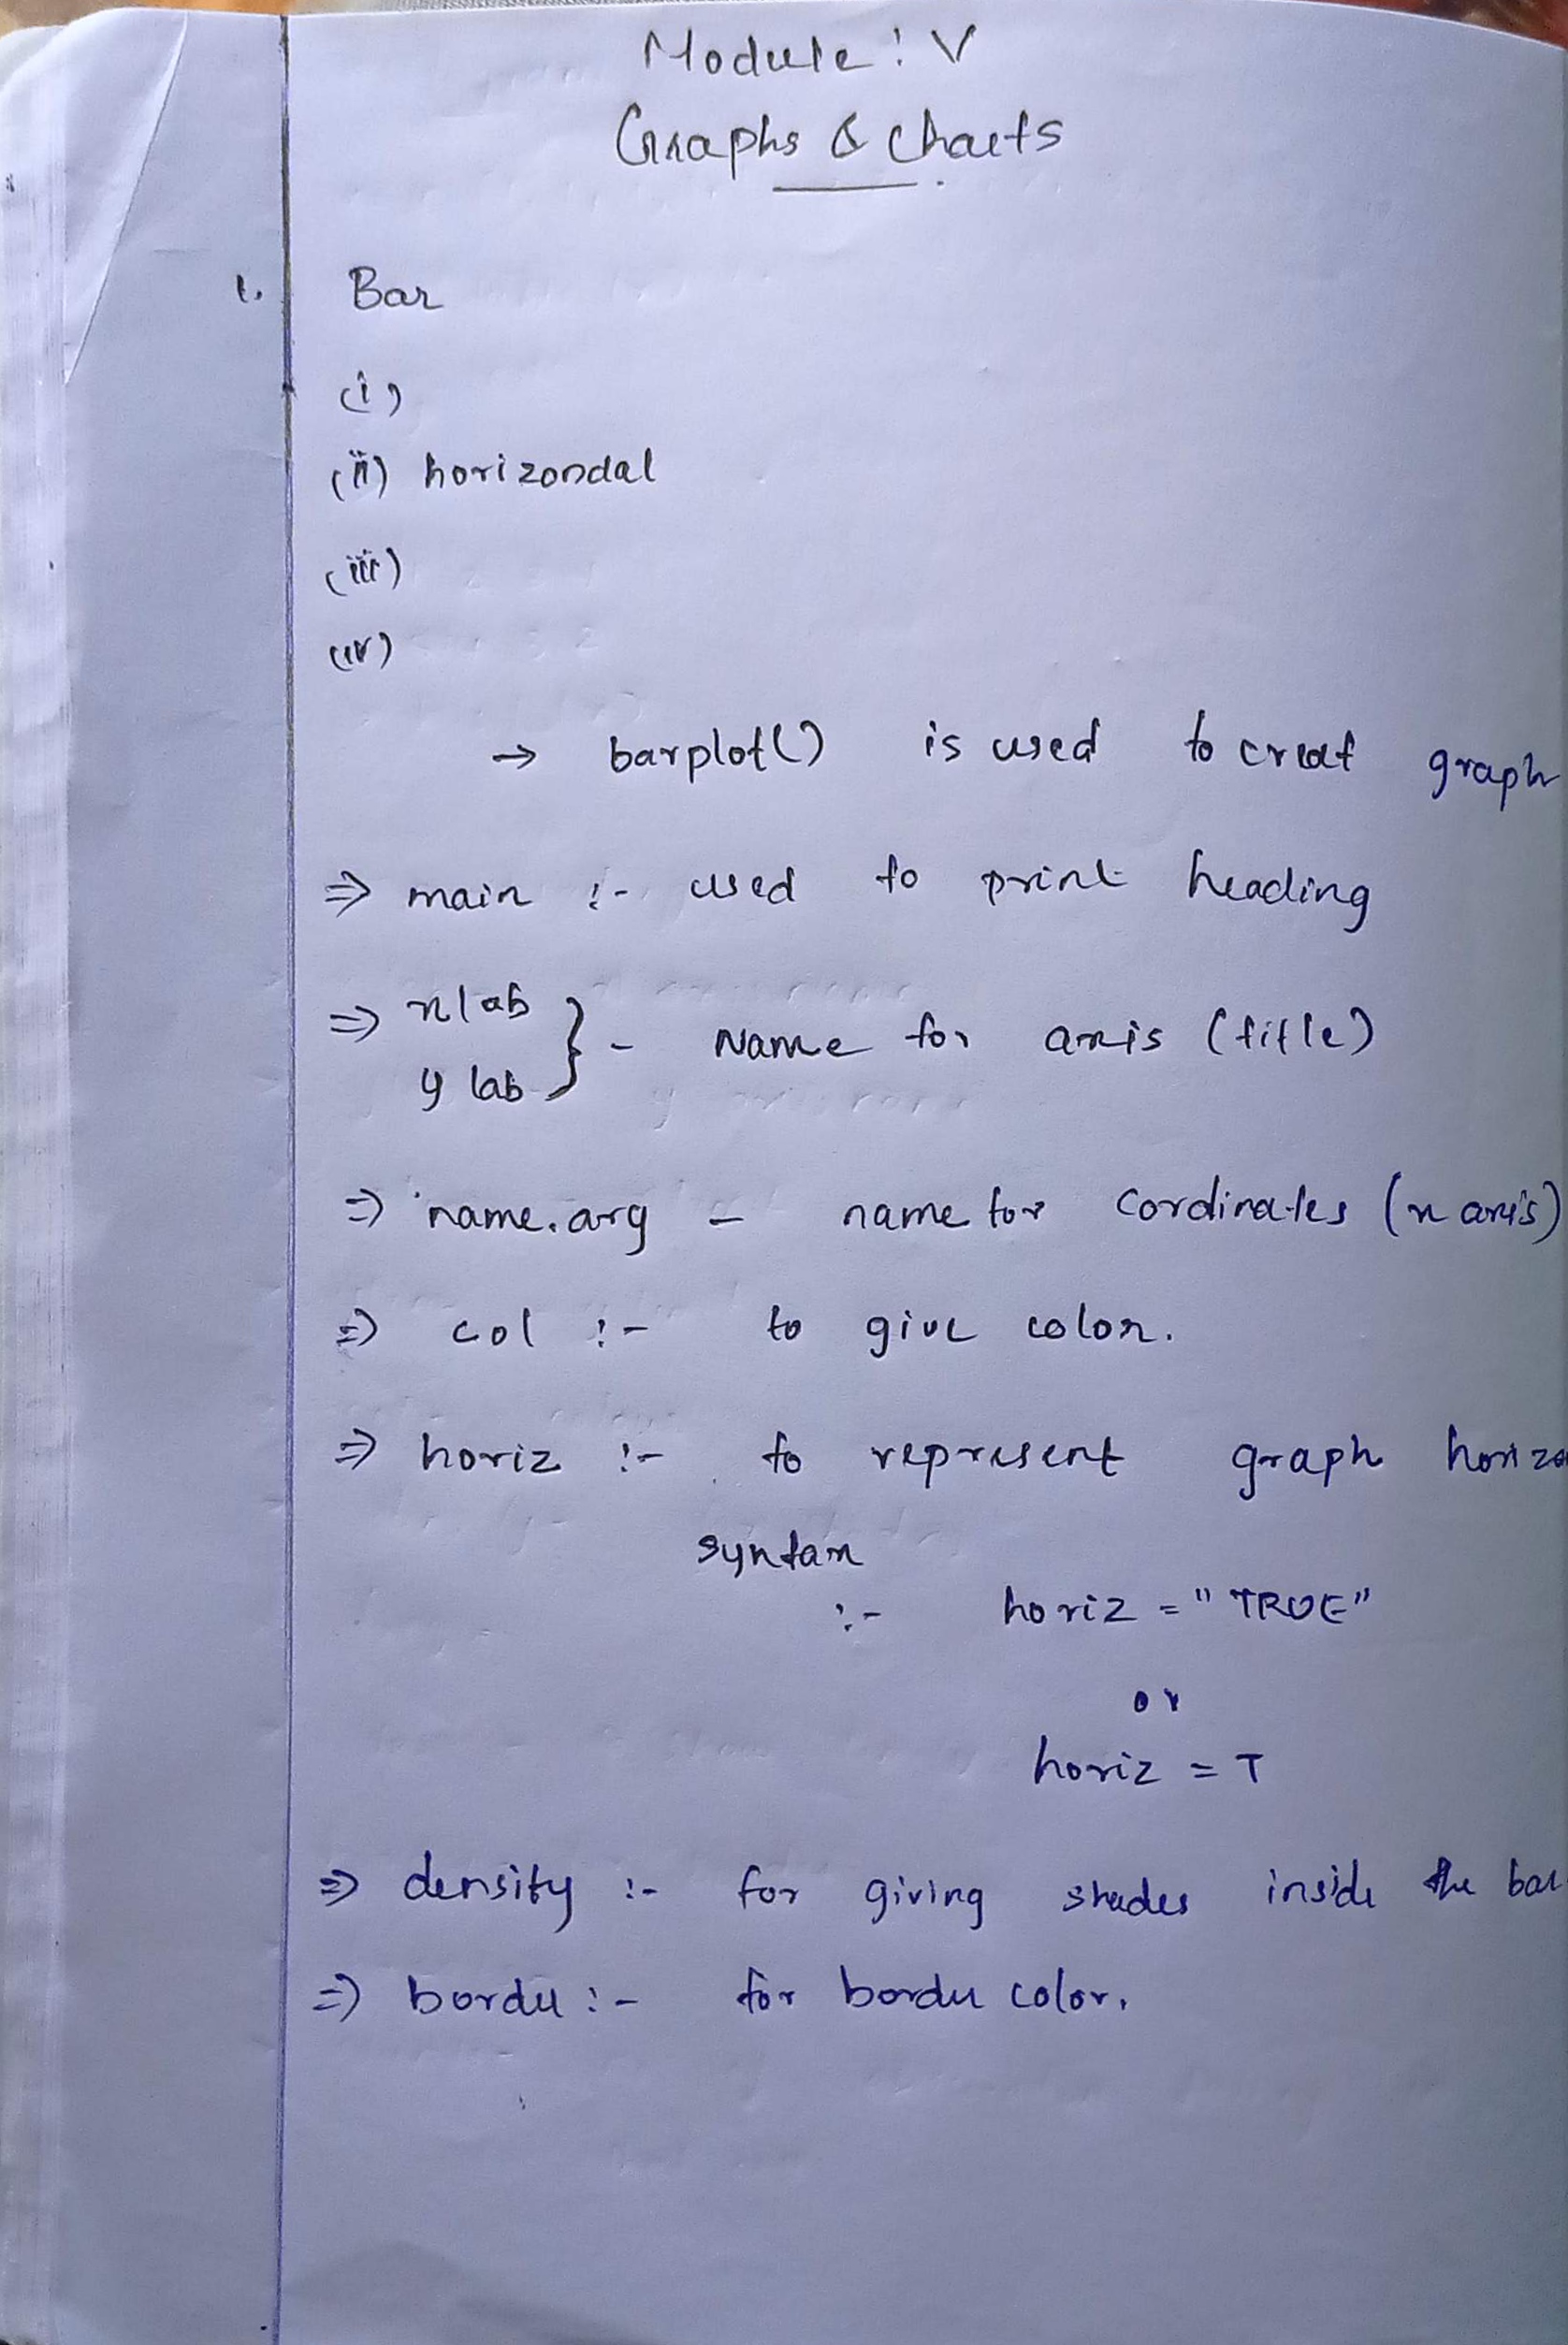 Module : V
Graphs & charts
1. Bar
(i)
(ii) horizondal
(iii)
(iv)
→ barplot() is used to creat graph
⇒ main :- used to print heading
⇒ xlab
y lab } - Name for axis (title)
⇒ name.arg - name for cordinates (x axis)
⇒ col :- to give color.
⇒ horiz :- to represent graph horizo
syntax
:- horiz = "TRUE"
or
horiz = T
⇒ density :- for giving shades inside the bar
⇒ border :- for border color.